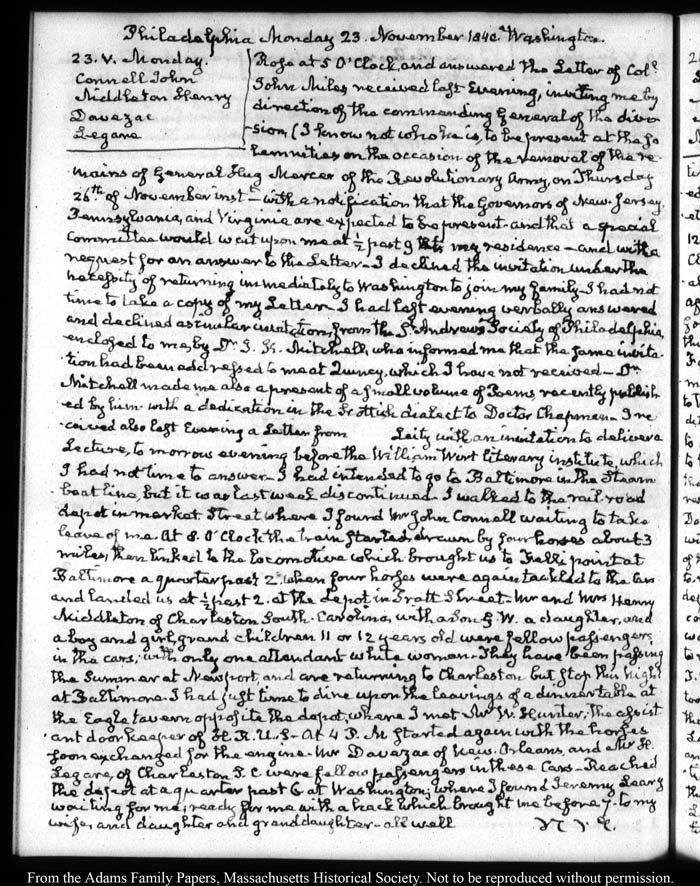 Philadelphia Monday 23. November 1840. Washington.
23. V. Monday.
Connell John
Middleton Henry
Davezac
Legare
Rose at 5 O'Clock, and answered the Letter of Coll
John Miles received last Evening, inviting me by
direction of the commanding General of the divi-
sion (I know not who he is, to be present at the so
lemnities on the occasion of the removal of the re-
mains of General Hug Mercer of the Revolutionary Army, on Thursday
26th of November inst - with a notification that the Governors of New-Jersey,
Pennsylvania, and Virginia are expected to be present - and that a special
Committee would wait upon me at ½ past 9 at my residence - and with a
request for an answer to the Letter - I declined the invitation under the
necessity of returning immediately to Washington to join my family - I had not
time to take a copy of my Letter - I had last evening verbally answered
and declined a similar invitation, from the St. Andrew's Society of Philadelphia,
enclosed to me, by Dr J. K. Mitchell, who informed me that the same invita-
tion had been addressed to me at Quincy, which I have not received - Dr
Mitchell made me also a present of a small volume of Poems recently publish
ed by him with a dedication in the Scottish dialect to Doctor Chapman - I re
ceived also last Evening a Letter from Leity with an invitation to deliver a
Lecture, to morrow evening before the William Wirt literary institute, which
I had not time to answer - I had intended to go to Baltimore in the Steam
boat line, but it was last week discontinued - I walked to the rail road
depot in market Street where I found Mr John Connell waiting to take
leave of me. At 8. O'Clock the train started, drawn by four horses about 3
miles, then linked to the locomotive which brought us to Fells point at
Baltimore a quarter past 2, when four horses were again tackled to the Cars
and landed us at ½ past 2. at the depot in Pratt Street - Mr and Mrs Henry
Middleton of Charleston South-Carolina, with a son E. W. a daughter, and
a boy and girl, grand children 11 or 12 years old were fellow passengers
in the cars, with only one attendant white woman. They have been passing
the Summer at Newport, and are returning to Charleston but stop this Night
at Baltimore. I had just time to dine upon the leavings of a dinner table at
the Eagle tavern opposite the depot, where I met Mr W. Hunter, the assist
ant door keeper of H. R. U. S - At 4 P. M started again with the horses
soon exchanged for the engine. Mr Davezac of New-Orleans, and Mr H.
Legare, of Charleston S. C were fellow passengers in these Cars - Reached
the depot at a quarter past 6 at Washington; where I found Jeremy Leary
waiting for me, ready for me with a hack which brought me before 7. to my
wife, and daughter and granddaughter - all well
From the Adams Family Papers, Massachusetts Historical Society. Not to be reproduced without permission.